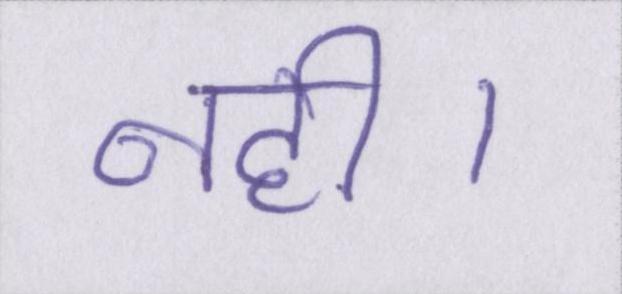 नही।